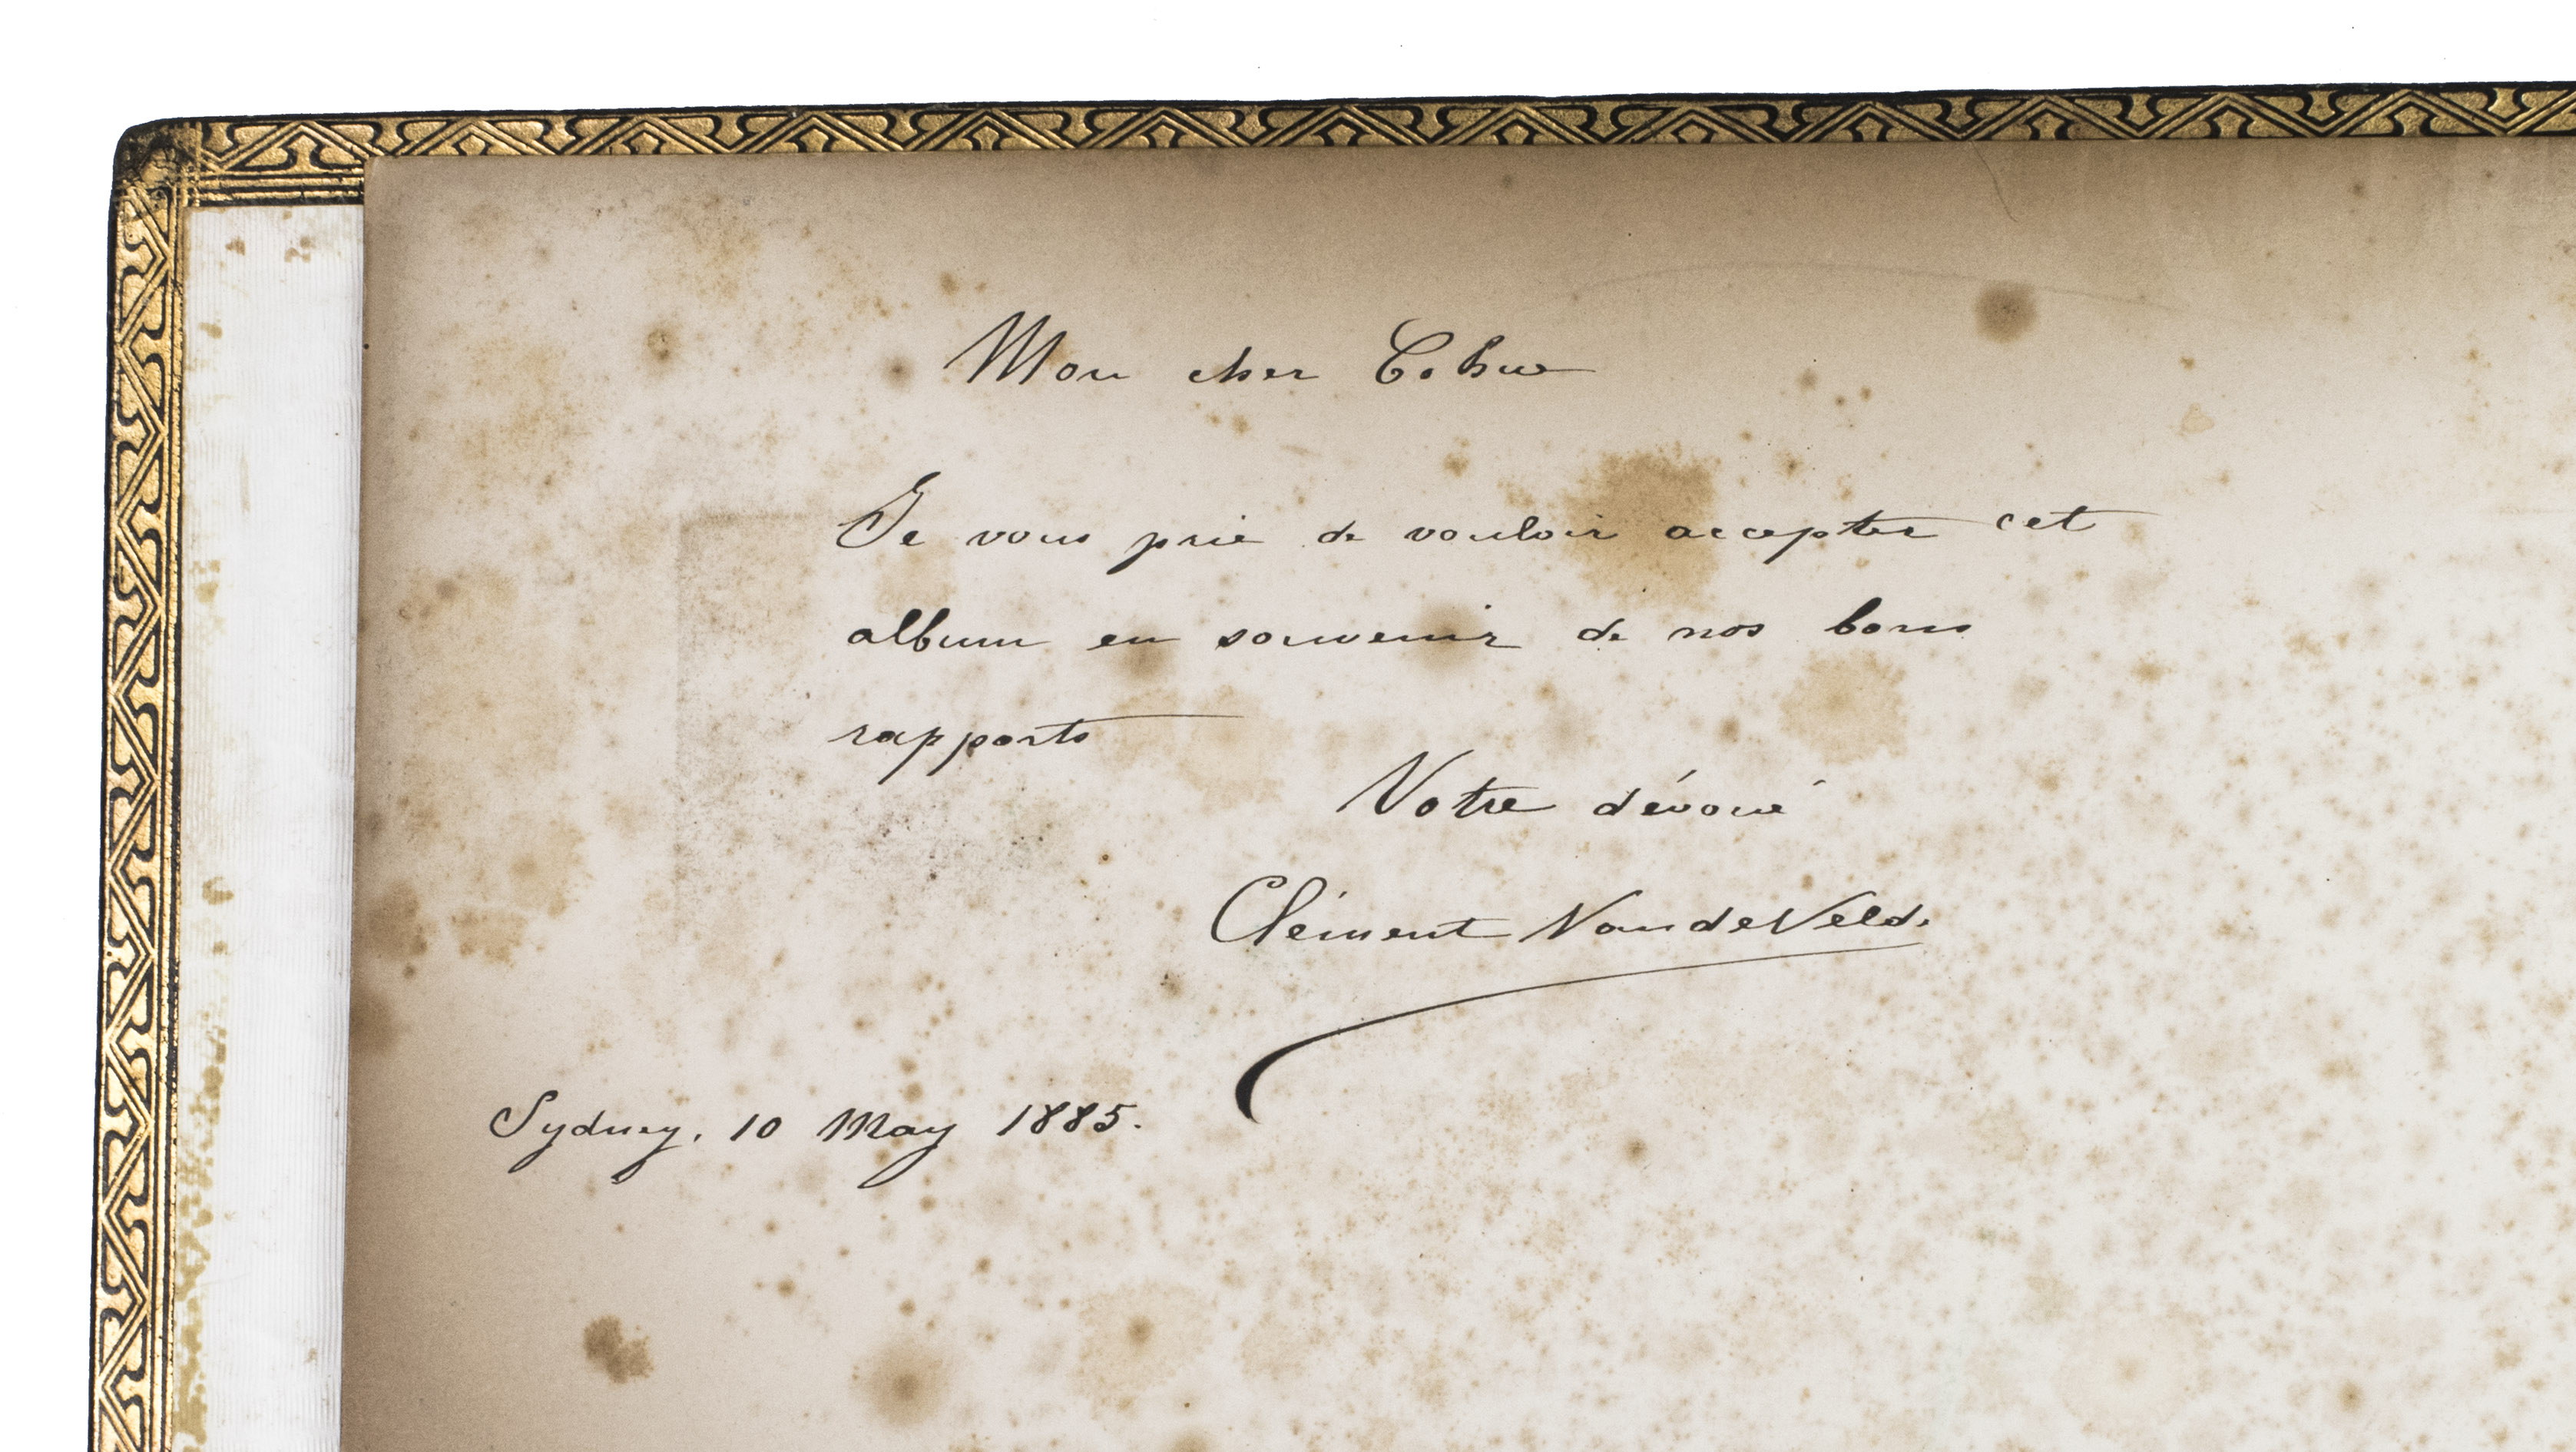 Mon cher
Je vous prie de vouloir accepter cet
album en souvenir de nos bons
rapports
Votre dévoué
Clément VandeVelde
Sydney, 10 May 1885.